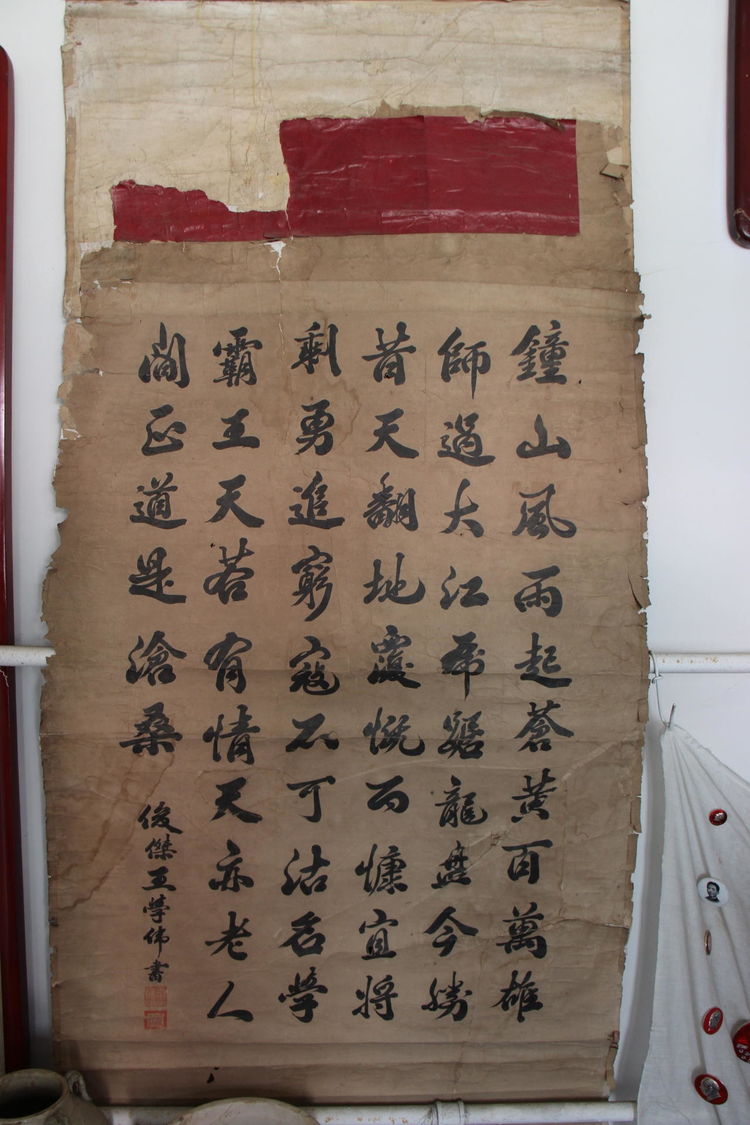 鐘山風雨起蒼黃百萬雄
師過大江虎踞龍盤今勝
昔天翻地覆慨而慷宜將
剩勇追窮寇不可沽名學
霸王天若有情天亦老人
間正道是滄桑
俊傑王學偉書